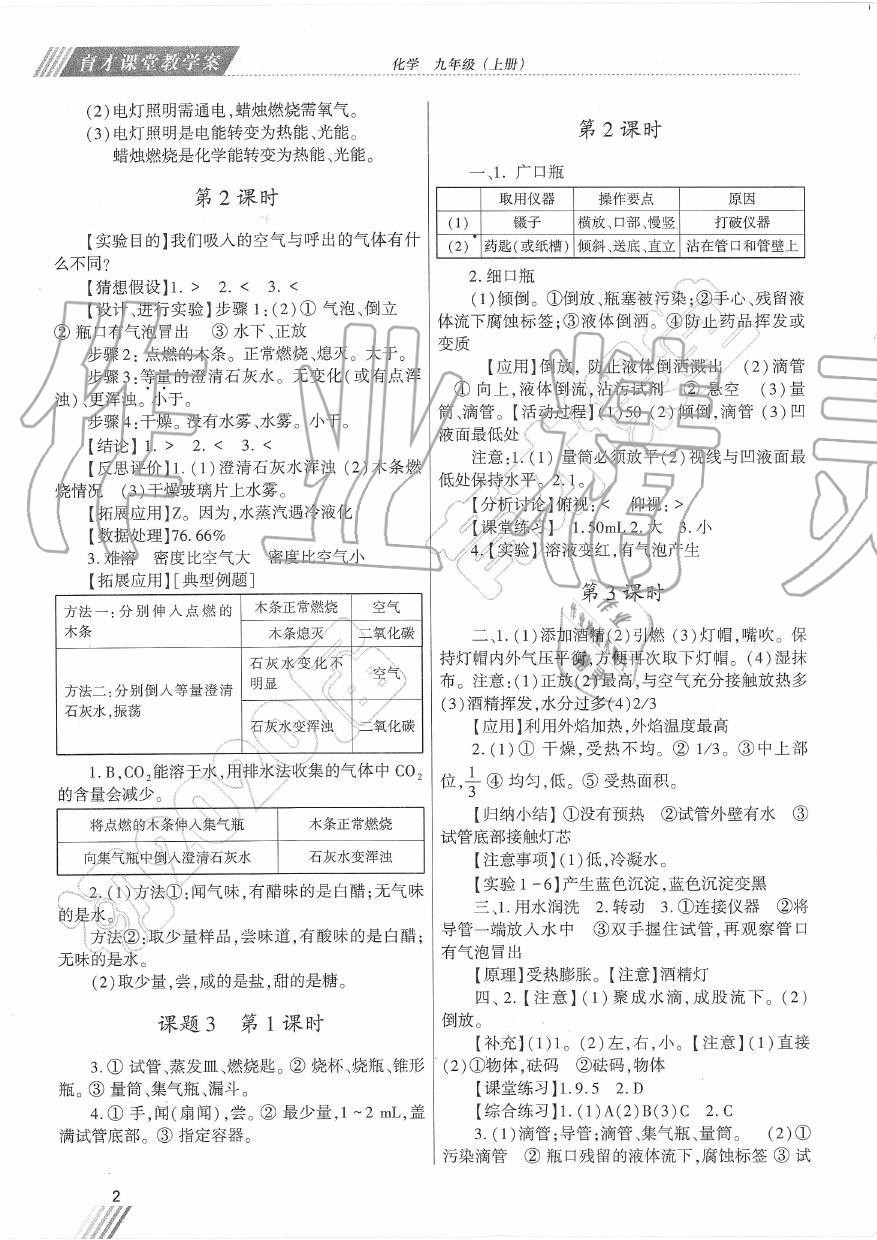 育才课堂教学案
化学 九年级(上册)
(2)电灯照明需通电,蜡烛燃烧需氧气。
(3)电灯照明是电能转变为热能、光能。
蜡烛燃烧是化学能转变为热能、光能。
第2课时
【实验目的】我们吸入的空气与呼出的气体有什
么不同?
【猜想假设】1. > 2. < 3. <
【设计、进行实验】步骤1:(2)① 气泡、倒立
② 瓶口有气泡冒出 ③ 水下、正放
步骤2:点燃的木条。正常燃烧、熄灭。大于。
步骤3:等量的澄清石灰水。无变化(或有点浑
浊)、更浑浊。小于。
步骤4:干燥。没有水雾、水雾。小于。
【结论】1. > 2. < 3. <
【反思评价】1. (1)澄清石灰水浑浊 (2)木条燃
烧情况 (3)干燥玻璃片上水雾。
【拓展应用】Z。因为,水蒸汽遇冷液化
【数据处理】76.66%
3. 难溶 密度比空气大 密度比空气小
【拓展应用】[典型例题]
方法一:分别伸入点燃的
木条
木条正常燃烧 空气
木条熄灭 二氧化碳
方法二:分别倒入等量澄清
石灰水,振荡
石灰水变化不
明显 空气
石灰水变浑浊 二氧化碳
1. B,CO₂能溶于水,用排水法收集的气体中 CO₂
的含量会减少。
将点燃的木条伸入集气瓶 木条正常燃烧
向集气瓶中倒入澄清石灰水 石灰水变浑浊
2. (1)方法①:闻气味,有醋味的是白醋;无气味
的是水。
方法②:取少量样品,尝味道,有酸味的是白醋;
无味的是水。
(2)取少量,尝,咸的是盐,甜的是糖。
课题3 第1课时
3. ① 试管、蒸发皿、燃烧匙。② 烧杯、烧瓶、锥形
瓶。③ 量筒、集气瓶、漏斗。
4. ① 手,闻(扇闻),尝。② 最少量,1~2 mL,盖
满试管底部。③ 指定容器。
2
第2课时
一、1. 广口瓶
取用仪器 操作要点 原因
(1) 镊子 横放、口部、慢竖 打破仪器
(2) 药匙(或纸槽) 倾斜、送底、直立 沾在管口和管壁上
2. 细口瓶
(1)倾倒。①倒放、瓶塞被污染;②手心、残留液
体流下腐蚀标签;③液体倒洒。④防止药品挥发或
变质
【应用】倒放, 防止液体倒洒溅出 (2)滴管
① 向上,液体倒流,沾污试剂 ② 悬空 (3)量
筒、滴管。【活动过程】(1)50 (2)倾倒,滴管 (3)凹
液面最低处
注意:1. (1) 量筒必须放平(2)视线与凹液面最
低处保持水平。2.1。
【分析讨论】俯视:< 仰视:>
【课堂练习】 1.50mL 2. 大 3. 小
4.【实验】溶液变红,有气泡产生
第3课时
二、1. (1)添加酒精(2)引燃 (3)灯帽,嘴吹。保
持灯帽内外气压平衡,方便再次取下灯帽。(4)湿抹
布。注意:(1)正放(2)最高,与空气充分接触放热多
(3)酒精挥发,水分过多(4)2/3
【应用】利用外焰加热,外焰温度最高
2. (1)① 干燥,受热不均。② 1/3。③中上部
位,1/3 ④ 均匀,低。⑤ 受热面积。
【归纳小结】①没有预热 ②试管外壁有水 ③
试管底部接触灯芯
【注意事项】(1)低,冷凝水。
【实验1-6】产生蓝色沉淀,蓝色沉淀变黑
三、1. 用水润洗 2. 转动 3. ①连接仪器 ②将
导管一端放入水中 ③双手握住试管,再观察管口
有气泡冒出
【原理】受热膨胀。【注意】酒精灯
四、2.【注意】(1)聚成水滴,成股流下。(2)
倒放。
【补充】(1)1。(2)左,右,小。【注意】(1)直接
(2)①物体,砝码 ②砝码,物体
【课堂练习】1.9.5 2.D
【综合练习】1.(1)A(2)B(3)C 2.C
3. (1)滴管;导管;滴管、集气瓶、量筒。 (2)①
污染滴管 ② 瓶口残留的液体流下,腐蚀标签 ③ 试